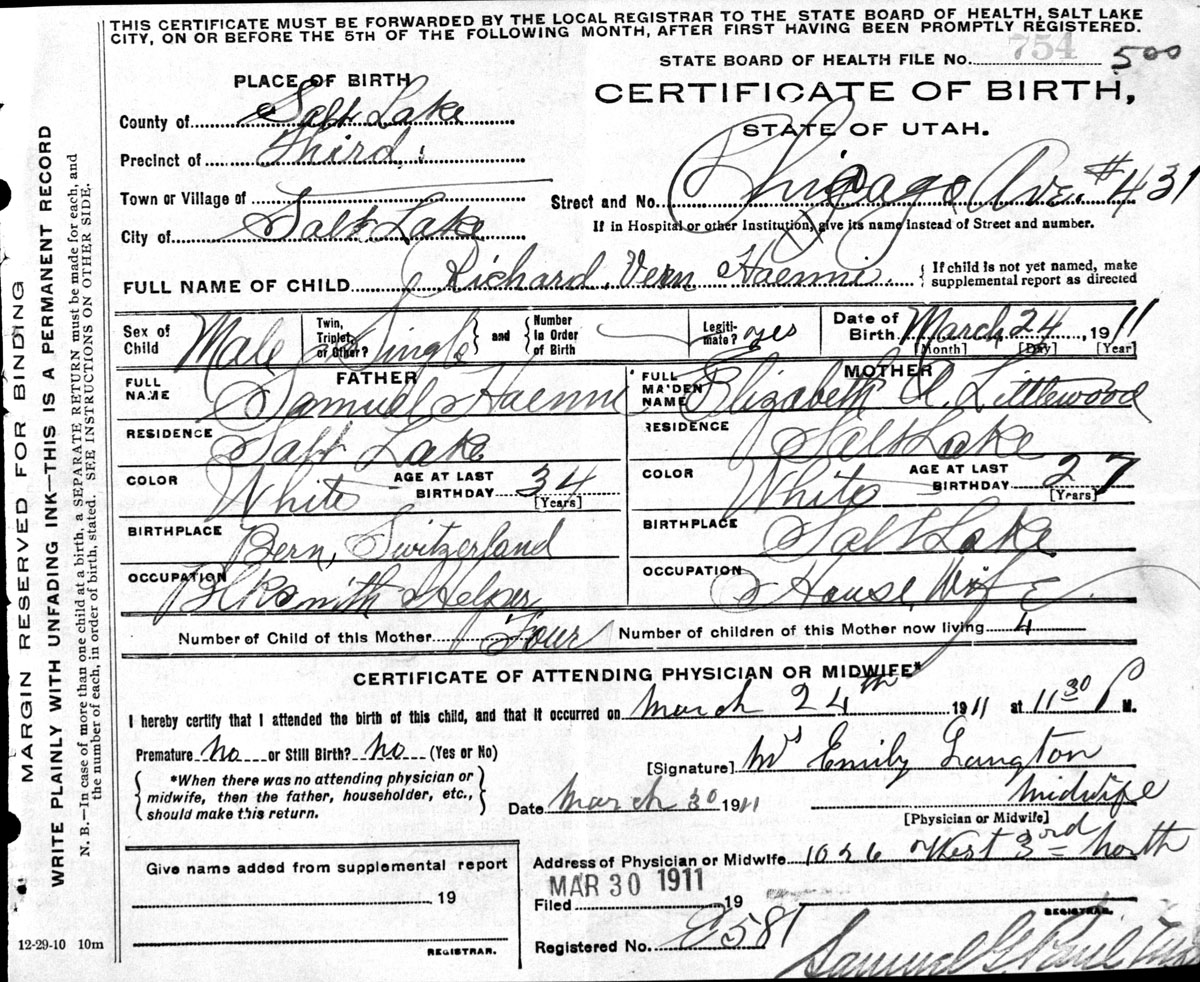 THIS CERTIFICATE MUST BE FORWARDED BY THE LOCAL REGISTRAR TO THE STATE BOARD OF HEALTH, SALT LAKE
CITY, ON OR BEFORE THE 5TH OF THE FOLLOWING MONTH, AFTER FIRST HAVING BEEN PROMPTLY REGISTERED.
STATE BOARD OF HEALTH FILE No. 754 500
PLACE OF BIRTH
CERTIFICATE OF BIRTH,
County of Salt Lake
STATE OF UTAH.
Precinct of Third
Town or Village of
Street and No. Chicago Ave. #431
City of Salt Lake
If in Hospital or other Institution, give its name instead of Street and number.
FULL NAME OF CHILD Richard Vern Haenni { If child is not yet named, make
supplemental report as directed
Sex of Child Male
Twin, Triplet, or Other? Single } and { Number In Order of Birth
Legiti- mate? yes
Date of Birth March 24, 1911
[Month] [Day] [Year]
FATHER
FULL NAME Samuel Haenni
RESIDENCE Salt Lake
COLOR White AGE AT LAST BIRTHDAY 34 [Years]
BIRTHPLACE Bern, Switzerland
OCCUPATION Blksmith Helper
MOTHER
FULL MAIDEN NAME Elizabeth A. Littlewood
RESIDENCE Salt Lake
COLOR White AGE AT LAST BIRTHDAY 27 [Years]
BIRTHPLACE Salt Lake
OCCUPATION House Wife
Number of Child of this Mother Four Number of children of this Mother now living 4
CERTIFICATE OF ATTENDING PHYSICIAN OR MIDWIFE*
I hereby certify that I attended the birth of this child, and that it occurred on March 24th 1911 at 11 30 P M.
Premature No or Still Birth? No (Yes or No)
[Signature] Mrs Emily Langton
{ *When there was no attending physician or
midwife, then the father, householder, etc.,
should make this return. }
Date March 30 1911
Midwife
[Physician or Midwife]
Give name added from supplemental report
19
REGISTRAR.
Address of Physician or Midwife 1026 West 3rd North
MAR 30 1911
Filed 19
REGISTRAR.
Registered No. 2581
Samuel G. Paul
12-29-10 10m
MARGIN RESERVED FOR BINDING
WRITE PLAINLY WITH UNFADING INK—THIS IS A PERMANENT RECORD
N. B.—In case of more than one child at a birth, a SEPARATE RETURN must be made for each, and
the number of each, in order of birth, stated. SEE INSTRUCTIONS ON OTHER SIDE.